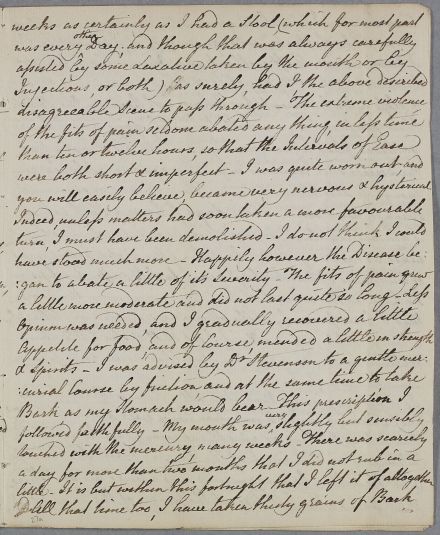 weeks as certainly as I had a Stool (which for most part
was every other Day, and though that was always carefully
assisted by some Laxative taken by the mouth or by
Injections or both) so surely, had I the above described
disagreeable Scene to pass through – The extreme violence
of the fits of pain seldome abated any thing in less time
than ten or twelve hours, so that the Intervals of Ease
were both short & imperfect – I was quite worn out and
you will easily believe, became very nervous & hysterical
Indeed unless matters had soon taken a more favourable
turn, I must have been demolished – I do not think I could
have stood much more – Happily however the Disease be:
:gan to abate a little of its Severity – The fits of pain grew
a little more moderate and did not last quite so long – Less
Opium was needed, and I gradually recovered a little
Appetite for food, and of course mended a little in strength
& Spirits – I was advised by Dr Stevenson to a gentle mer:
:curial Course by friction and at the same time to take
Bark as my Stomach would bear – This prescription I
followed faithfully – My mouth was very slightly but sensibly
touched with the mercury many weeks – There was scarcely
a day for more than two months that I did not rub in a
little – It is but within this fortnight that I left it of altogether
All that time too, I have taken thirty grains of Bark